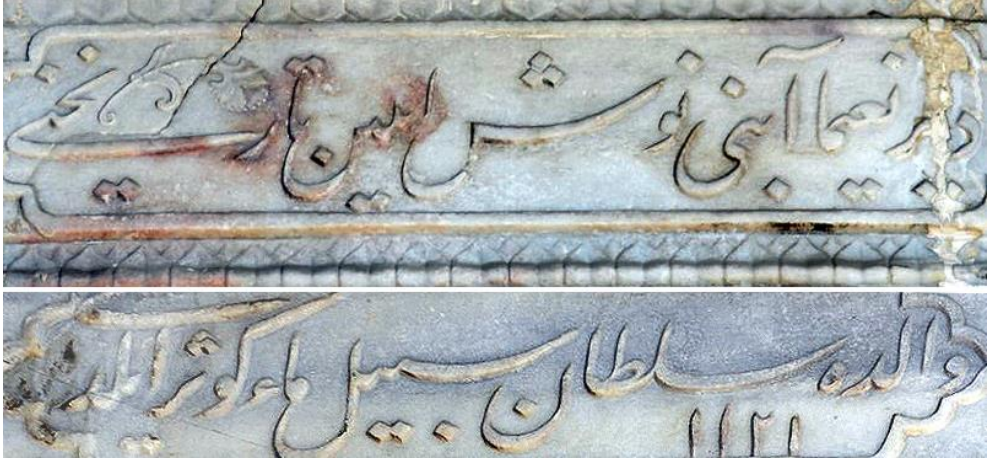 دیر نعیما آبنی نوش ایلین تاریخنی
والده سلطان سبیل ماء کوثر ایلدی
١١٢١